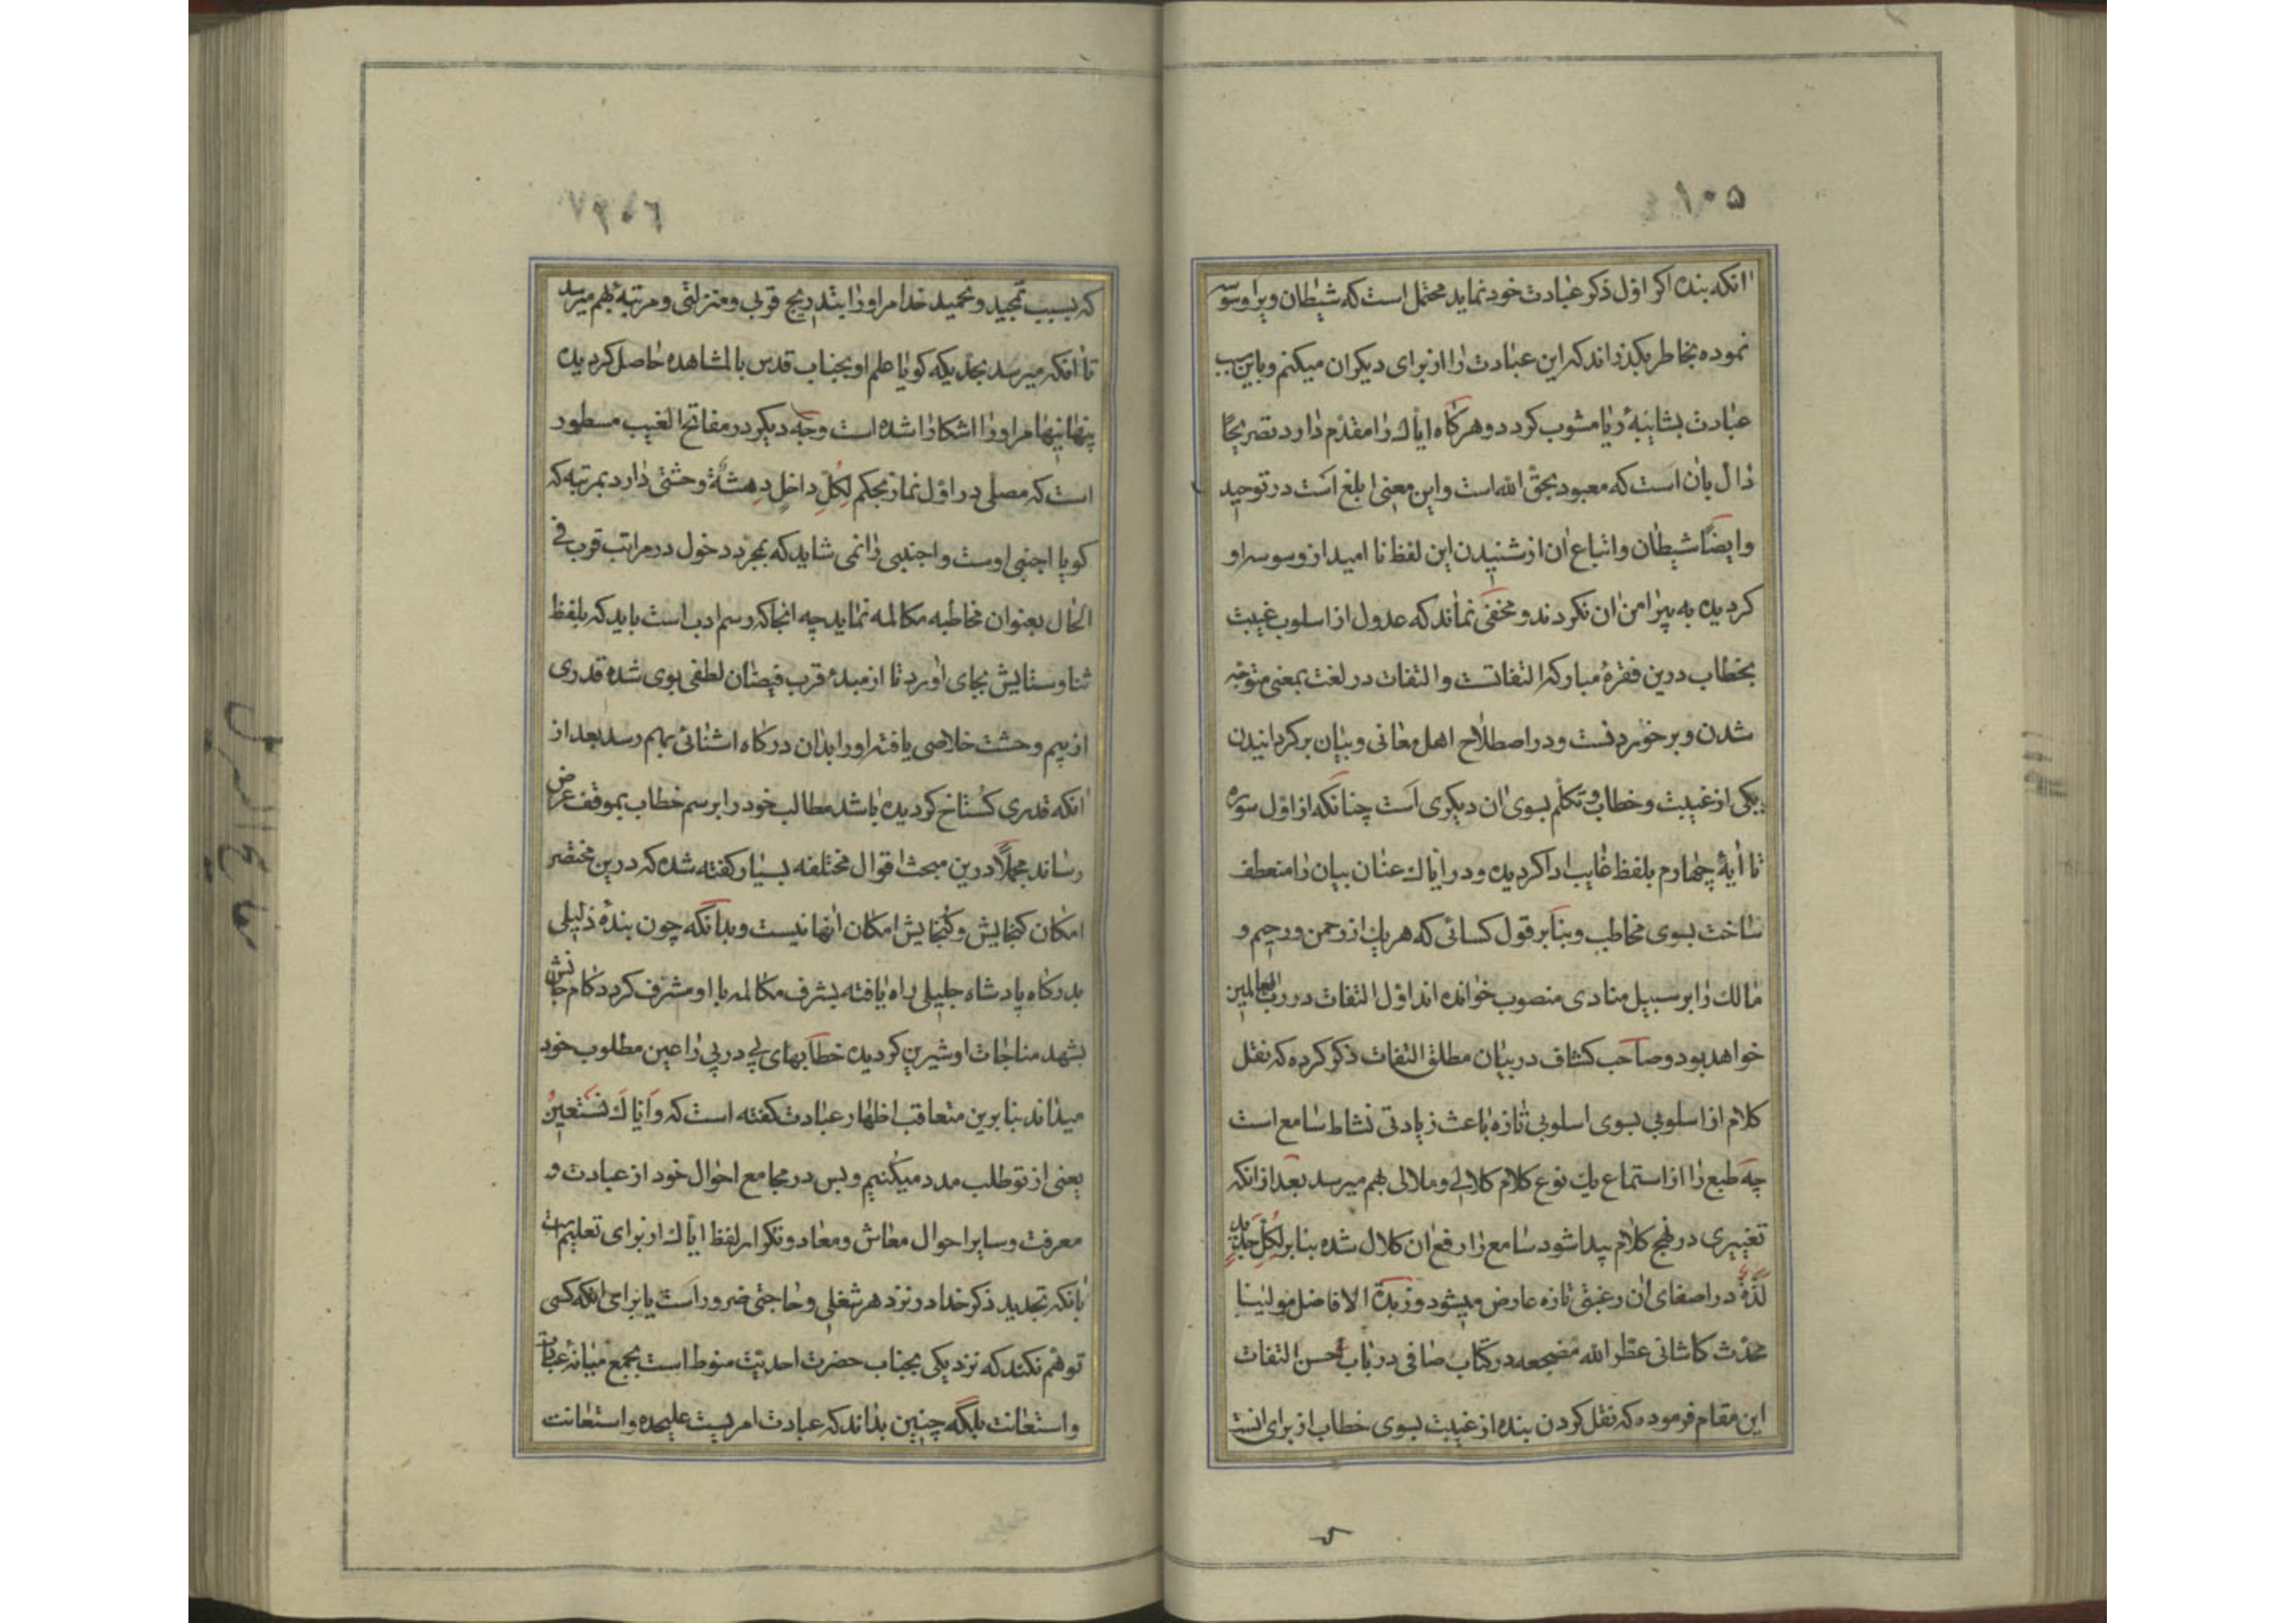 ۱۰۵
انکه بنده اکر اوّل ذکر عبادت خود نماید محتمل است که شیطان ویرا وسوسه
نموده بخاطر بکذراند که این عبادت را از برای دیکران میکنم و باین سبب
عبادت بشایبهٔ ریا مشوب کردد و هرکاه ایاك را مقدّم دارد تصریحًا
دالّ بان است که معبود بحق الله است و این معنی ابلغ است در توحید
و ایضًا شیطان و اتباع ان از شنیدن این لفظ نا امید از وسوسه او
کردیده به پیرامن ان نکردند و مخفی نماند که عدول از اسلوب غیبت
بخطاب درین فقرهٔ مبارکه التفاتست و التفات در لغت بمعنی متوجّه
شدن و برخوردنست و در اصطلاح اهل معانی و بیان برکردانیدن
یکی از غیبت و خطاب و تکلّم بسوی ان دیکری است چنانکه از اوّل سوره
تا ایهٔ چهارم بلفظ غایب ادا کردیده و در ایّاك عنان بیان را منعطف
ساخت بسوی مخاطب و بنابر قول کسانی که هریك از رحمن و رحیم و
مالك را بر سبیل منادی منصوب خوانده اند اوّل التفات در ربّ العالمین
خواهد بود و صاحب کشاف در بیان مطلق التفات ذکر کرده که نقل
کلام از اسلوبی بسوی اسلوبی تازه باعث زیادتی نشاط سامع است
چه طبع را از استماع یك نوع کلام کلالی و ملالی بهم میرسد بعد از انکه
تغییری در نهج کلام پیدا شود سامع را رفع ان کلال شده بنابر لِکُلِّ جَدیدٍ
لَذَّةٌ در اصغای ان رغبتی تازه عارض میشود و زبدة الافاضل مولینا
محدّث کاشانی عطّر الله مضجعه در کتاب صافی در باب حسن التفات
این مقام فرموده که نقل کردن بنده از غیبت بسوی خطاب از برای انست
که بسبب تمجید و تحمید خدا مر او را بتدریج قربی و منزلتی و مرتبهٔ بهم میرسد
تا انکه میرسد بحدّیکه کویا علم او بجناب قدس بالمشاهده حاصل کردیده
پنهانیها مر او را اشکارا شده است و وجه دیکر در مفاتح الغیب مسطور
است که مصلی در اوّل نماز بحکم لِکُلِّ داخلٍ دِهشَةٌ وحشتی دارد بمرتبه که
کویا اجنبی اوست و اجنبی را نمی شاید که بمجرّد دخول در مراتب قرب فی
الحال بعنوان مخاطبه مکالمه نماید چه انجا که رسم ادب است باید که بلفظ
ثنا و ستایش بجای اورد تا از مبدء قرب فیضان لطفی بوی شده قدری
از بیم وحشت خلاصی یافته او را بدان درکاه اشنائی بهم رسد بعد از
انکه قدری کستاخ کردیده باشد مطالب خود را برسم خطاب بموقف عرض
رساند مجملًا درین مبحث اقوال مختلفه بسیار کفته شده که درین مختصر
امکان کنجایش و کنجایش امکان انها نیست و بدانکه چون بندهٔ ذلیلی
بدرکاه پادشاه جلیلی راه یافته بشرف مکالمه با او مشرّف کردد کام جانش
بشهد مناجات او شیرین کردیده خطابهای پی در پی را عین مطلوب خود
میداند بنابرین متعاقب اظهار عبادت کفته است که وَ اِیّاكَ نَستَعینُ
یعنی از تو طلب مدد میکنیم و بس در مجامع احوال خود از عبادت و
معرفت و سایر احوال معاش و معاد و تکرار لفظ ایّاك از برای تعلیم است
بانکه تجدید ذکر خدا در نزد هر شغلی و حاجتی ضرور است یا برای انکه کسی
توهّم نکند که نزدیکی بجناب حضرت احدیّت منوط است بجمع میانهٔ عبادت
و استعانت بلکه چنین بداند که عبادت امریست علیحده و استعانت